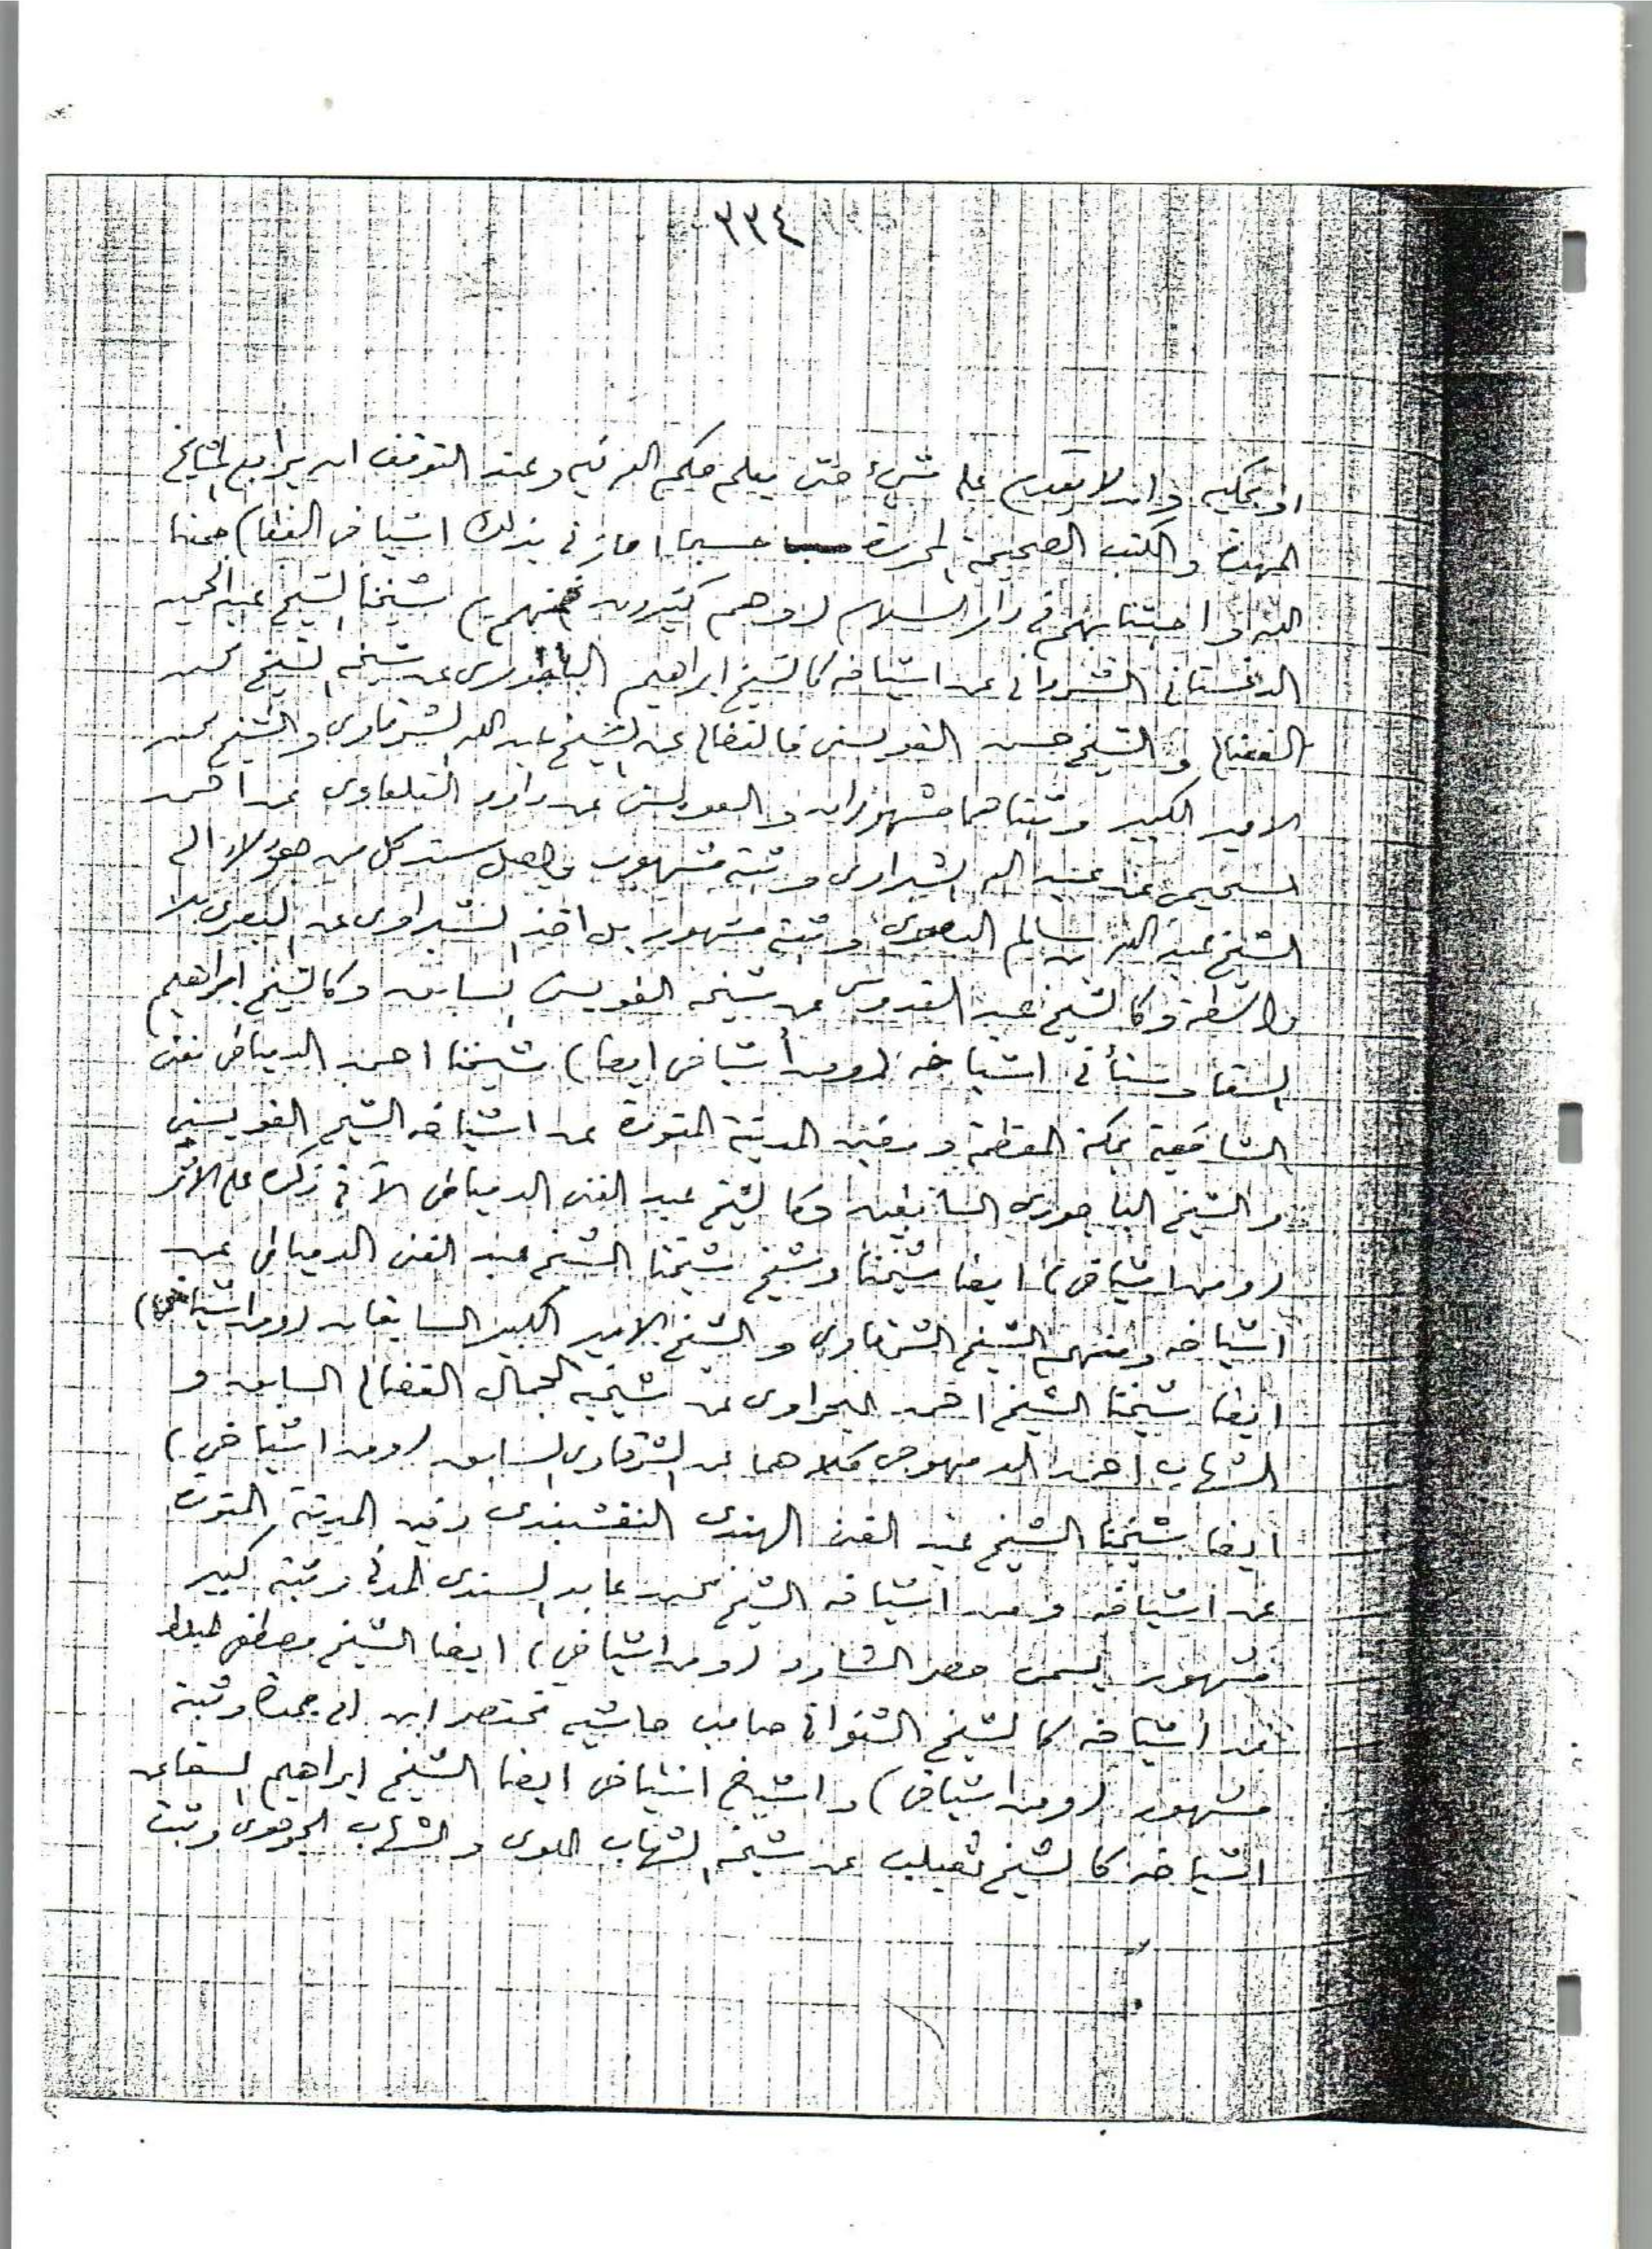 ٣٣٤
او يحكيه وان لا يقدم على شيء حتى يعلم حكم الله فيه وعند التوقف ان يراجع المشايخ
المهرة والكتب الصحيحة المحررة حسبما اجازني بذلك اشياخى الفخام جمعنا
الله واحبتنا بهم في دار السلام (وهم كثيرون فمنهم) شيخنا الشيخ عبد الحميد
الداغستاني الشرواني عن اشياخه كالشيخ ابراهيم الباجوري عن شيخه الشيخ محمد
الفضالي والشيخ حسن القويسنى فالفضالى عن الشيخ عبد الله الشرقاوى والشيخ محمد
الامير الكبير وثبتاهما مشهوران والقويسنى عن داود القلعاوى عن احمد
السحيمى عن عبد الله الشبراوى وثبته مشهور واصل سند كل من هؤلاء الى
الشيخ عبد الله بن سالم البصرى وثبته مشهور بل اخذ الشبراوى عن البصرى بلا
واسطة وكالشيخ عبد القدوس عن شيخه القويسنى السابق وكالشيخ ابراهيم
السقا وستأتى اشياخه (ومن أشياخى ايضا) شيخنا احمد الدمياطى مفتى
الشافعية بمكة المعظمة ودفين المدينة المنورة عن اشياخه الشيخ القويسنى
والشيخ الباجورى السابقين وكالشيخ عبد الغنى الدمياطى الآتى ذكره على الاثر
(ومن اشياخى) ايضا شيخنا وشيخ شيخنا الشيخ عبد الغنى الدمياطى عن
اشياخه ومنهم الشيخ الشرقاوى والشيخ الامير الكبير السابقان (ومن اشياخى)
ايضا شيخنا الشيخ احمد النحراوى عن شيخيه الجمال الفضالى السابق و
الشهاب احمد الدمهوجى كلاهما عن الشرقاوى السابق (ومن اشياخي)
ايضا شيخنا الشيخ عبد الغنى الهندى النقشبندى دفين المدينة المنورة
عن اشياخه ومن اشياخه الشيخ محمد عابد السندى المدنى وثبته كبير
مشهور يسمى حصر الشارد (ومن اشياخي) ايضا الشيخ مصطفى المبلط
عن اشياخه كالشيخ الشنوانى صاحب حاشية مختصر ابن ابى جمرة وثبته
مشهور (ومن اشياخى) واشياخ اشياخى ايضا الشيخ ابراهيم السقا عن
اشياخه كالشيخ ثعيلب عن شيخه الشهاب الملوى والشهاب الجوهرى وثبت